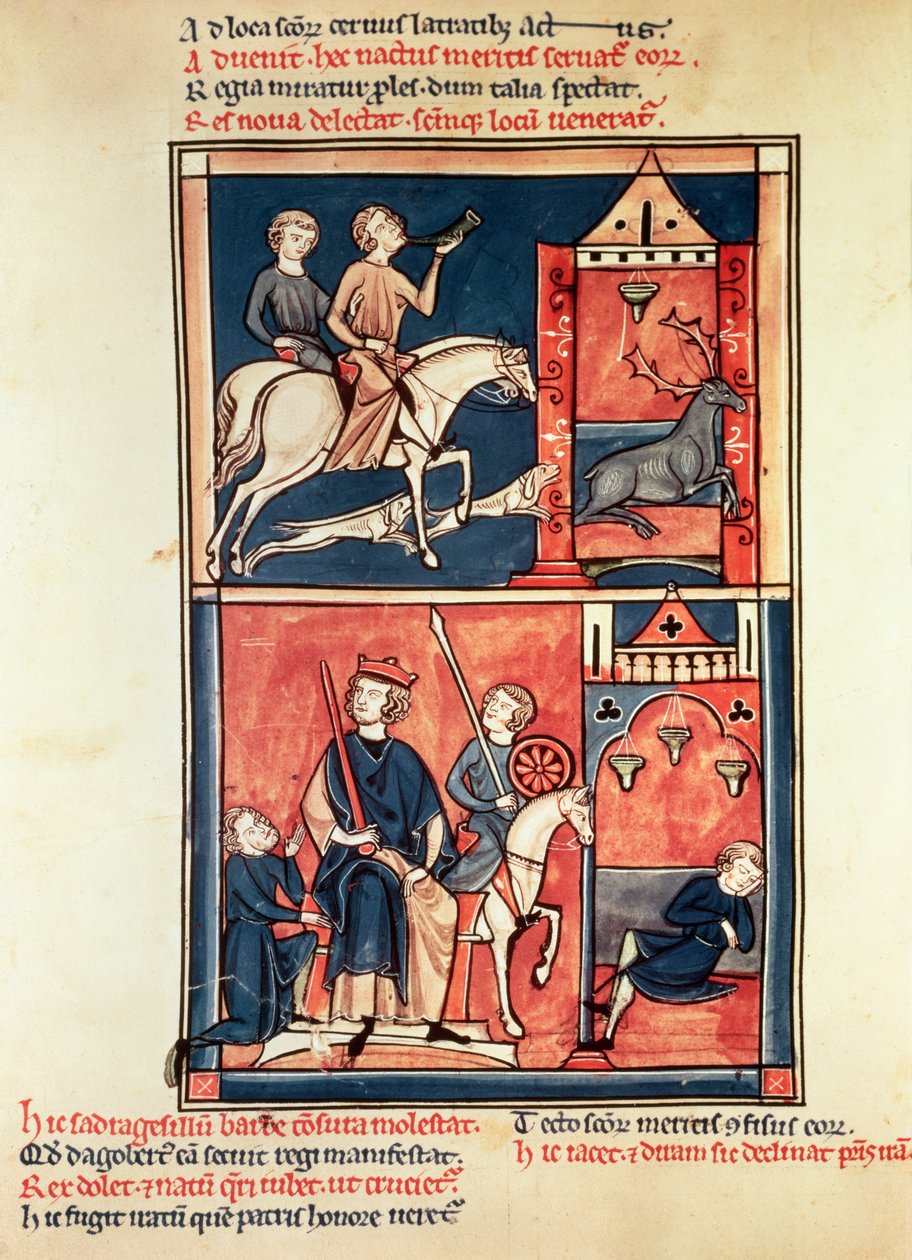 A d loca scōꝝ ceruus latratibꝫ act us.
A duenit. hec nactus meritis seruatᷣ eoꝝ.
R egia miratur ꝓles. dum talia spectat.
R es noua delectat. scīmqꝫ locū ueneratᷣ.
h ic sadragesillū barbe tōsura molestat.
Qd̄ dagobertꝰ eā secuit regi manifestat.
R ex dolet. ⁊ natū q̄ri iubet. ut crucietᷣ.
h ic fugit iratū quē patris honore ueretᷣ
T ecto scōꝝ meritis ꝯfisus eoꝝ.
h ic iacet. ⁊ diram sic declinat pr̄is irā.